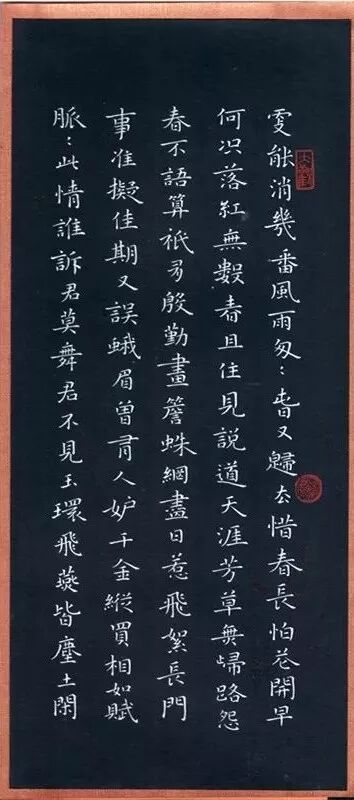 更能消幾番風雨匆〻春又歸去惜春長怕花開早
何況落紅無數春且住見說道天涯芳草無歸路怨
春不語算祇有殷勤畫簷蛛網盡日惹飛絮長門
事准擬佳期又誤蛾眉曾有人妒千金縱買相如賦
脈〻此情誰訴君莫舞君不見玉環飛燕皆塵土閑